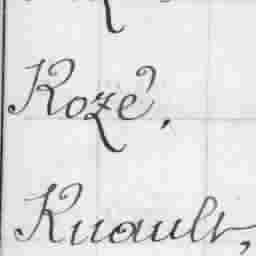 Rozé,
Ruault,